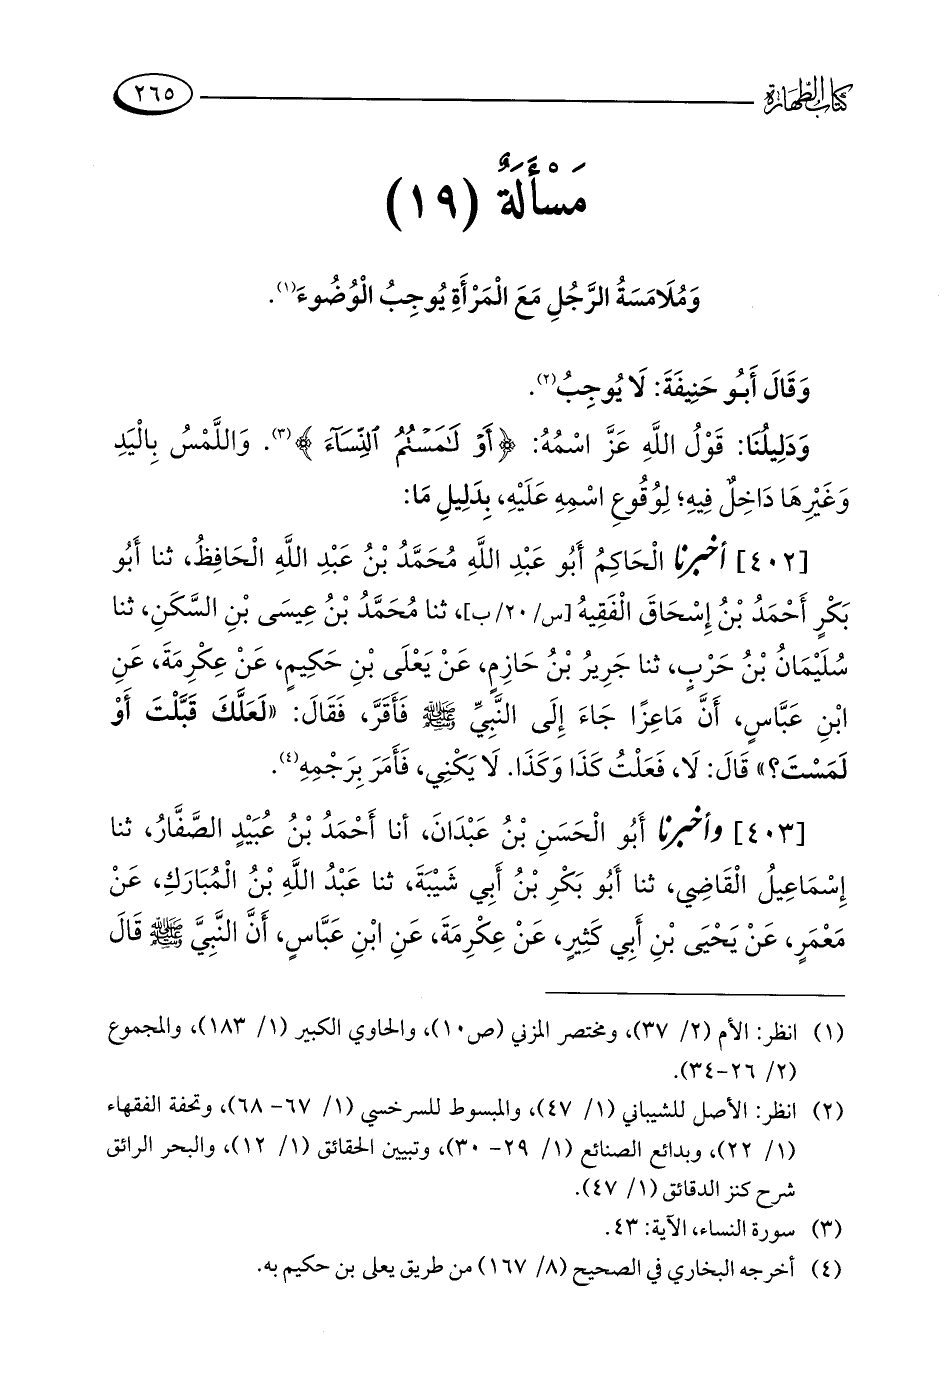 كتاب الطهارة ٢٦٥
مَسْأَلَةٌ (١٩)
وَمُلَامَسَةُ الرَّجُلِ مَعَ الْمَرْأَةِ يُوجِبُ الْوُضُوءَ(١).
وَقَالَ أَبُو حَنِيفَةَ: لَا يُوجِبُ(٢).
وَدَلِيلُنَا: قَوْلُ اللَّهِ عَزَّ اسْمُهُ: ﴿أَوْ لَٰمَسْتُمُ ٱلنِّسَآءَ﴾(٣). وَاللَّمْسُ بِالْيَدِ
وَغَيْرِهَا دَاخِلٌ فِيهِ؛ لِوُقُوعِ اسْمِهِ عَلَيْهِ، بِدَلِيلِ مَا:
[٤٠٢] أخبرنا الْحَاكِمُ أَبُو عَبْدِ اللَّهِ مُحَمَّدُ بْنُ عَبْدِ اللَّهِ الْحَافِظُ، ثنا أَبُو
بَكْرٍ أَحْمَدُ بْنُ إِسْحَاقَ الْفَقِيهُ [س/٢٠/ب]، ثنا مُحَمَّدُ بْنُ عِيسَى بْنِ السَّكَنِ، ثنا
سُلَيْمَانُ بْنُ حَرْبٍ، ثنا جَرِيرُ بْنُ حَازِمٍ، عَنْ يَعْلَى بْنِ حَكِيمٍ، عَنْ عِكْرِمَةَ، عَنِ
ابْنِ عَبَّاسٍ، أَنَّ مَاعِزًا جَاءَ إِلَى النَّبِيِّ ﷺ فَأَقَرَّ، فَقَالَ: «لَعَلَّكَ قَبَّلْتَ أَوْ
لَمَسْتَ؟» قَالَ: لَا، فَعَلْتُ كَذَا وَكَذَا. لَا يَكْنِي، فَأَمَرَ بِرَجْمِهِ(٤).
[٤٠٣] وأخبرنا أَبُو الْحَسَنِ بْنُ عَبْدَانَ، أنا أَحْمَدُ بْنُ عُبَيْدٍ الصَّفَّارُ، ثنا
إِسْمَاعِيلُ الْقَاضِي، ثنا أَبُو بَكْرِ بْنُ أَبِي شَيْبَةَ، ثنا عَبْدُ اللَّهِ بْنُ الْمُبَارَكِ، عَنْ
مَعْمَرٍ، عَنْ يَحْيَى بْنِ أَبِي كَثِيرٍ، عَنْ عِكْرِمَةَ، عَنِ ابْنِ عَبَّاسٍ، أَنَّ النَّبِيَّ ﷺ قَالَ
(١) انظر: الأم (٢/ ٣٧)، ومختصر المزني (ص١٠)، والحاوي الكبير (١/ ١٨٣)، والمجموع
(٢/ ٢٦-٣٤).
(٢) انظر: الأصل للشيباني (١/ ٤٧)، والمبسوط للسرخسي (١/ ٦٧- ٦٨)، وتحفة الفقهاء
(١/ ٢٢)، وبدائع الصنائع (١/ ٢٩- ٣٠)، وتبيين الحقائق (١/ ١٢)، والبحر الرائق
شرح كنز الدقائق (١/ ٤٧).
(٣) سورة النساء، الآية: ٤٣.
(٤) أخرجه البخاري في الصحيح (٨/ ١٦٧) من طريق يعلى بن حكيم به.